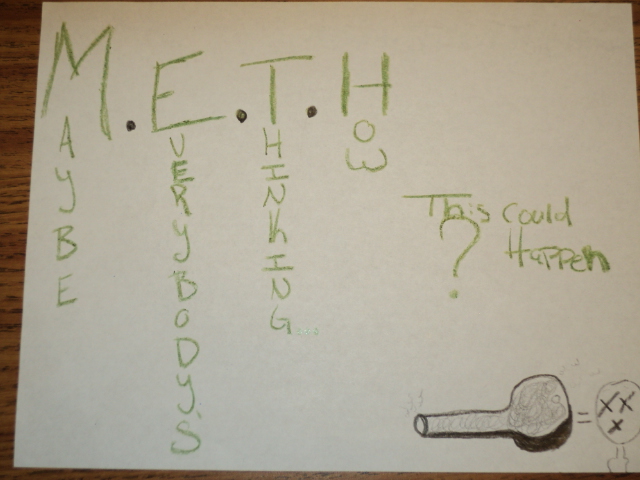 M.E.T.H
MAYBE
EVERYBODYS
THINKING...
HOW
This Could
Happen
?
=
XX
X